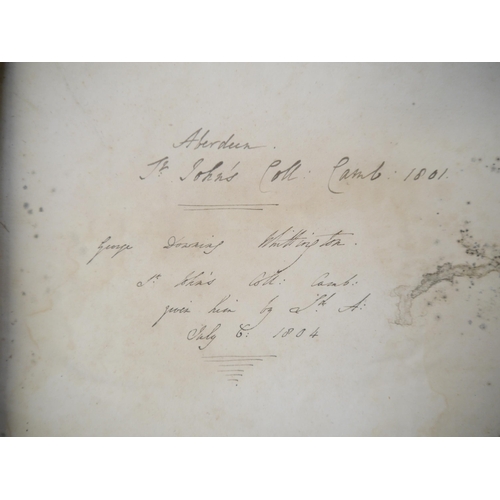 Aberdeen.
St. John's Coll: Camb: 1801
George Downing Whittington.
St. John's Coll: Camb:
given him by Ld. A:
July 6: 1804